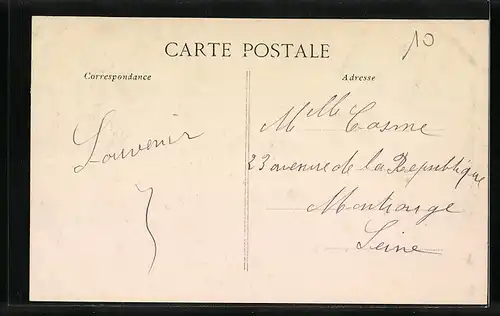 10
CARTE POSTALE
Correspondance
Adresse
Souvenir
Mlle Cosme
23 avenue de la République
Montrouge
Seine